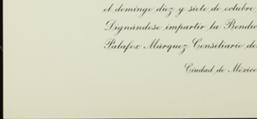 el domingo diez y siete de octubre
Dignándose impartir la Bendic
Palafox Márquez Consiliario de
Ciudad de México